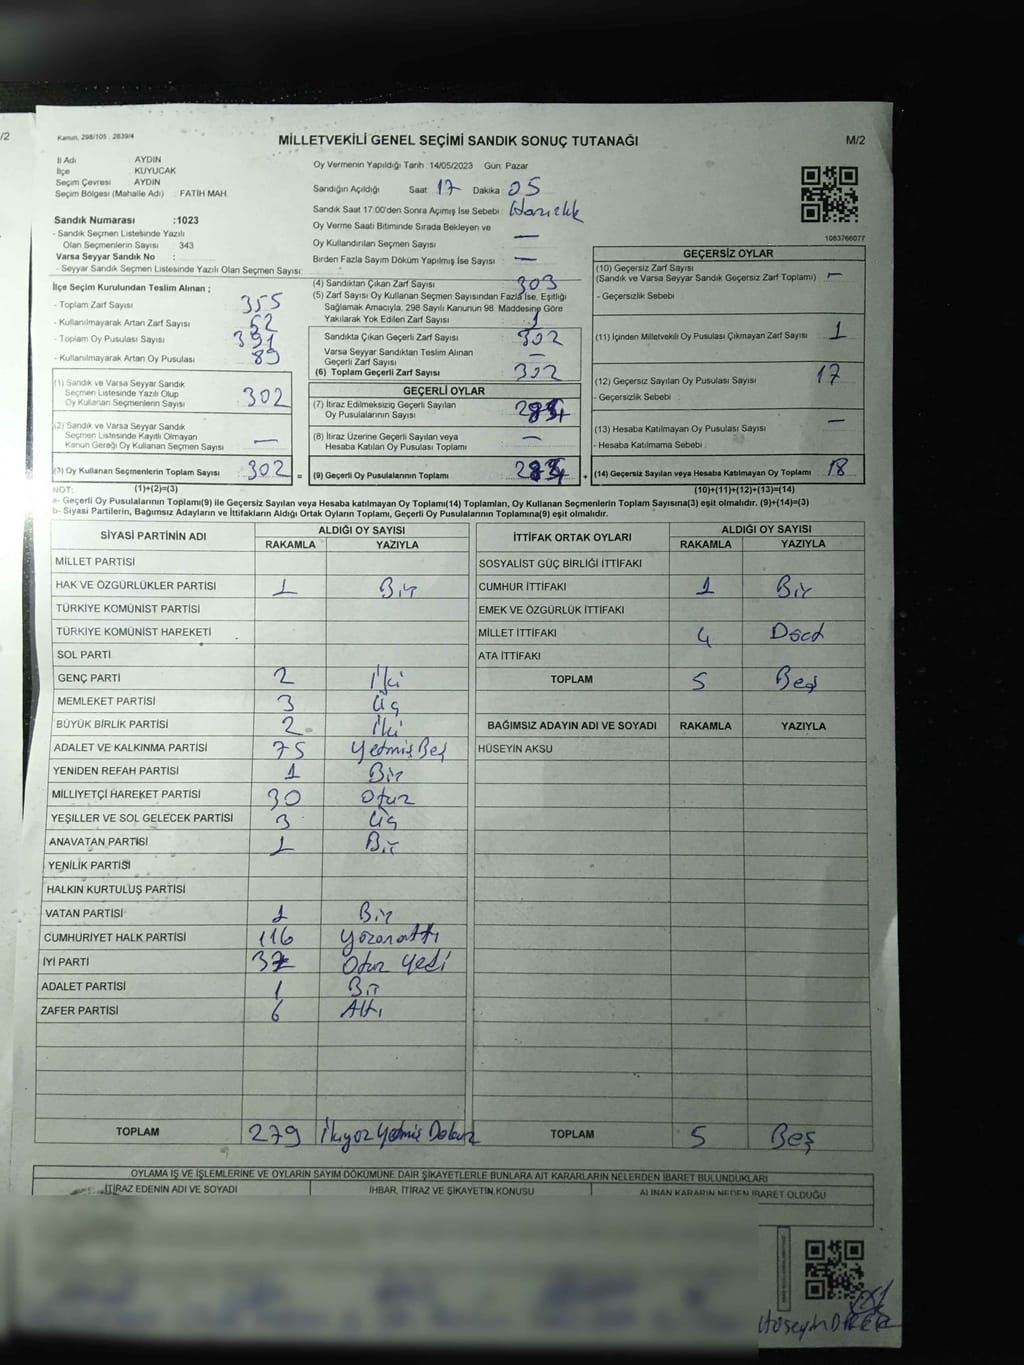 /2
Kanun, 298/105 , 2839/4
MİLLETVEKİLİ GENEL SEÇİMİ SANDIK SONUÇ TUTANAĞI
M/2
İl Adı AYDIN
İlçe KUYUCAK
Seçim Çevresi AYDIN
Seçim Bölgesi (Mahalle Adı) : FATİH MAH.
Oy Vermenin Yapıldığı Tarih : 14/05/2023 Gün: Pazar
Sandığın Açıldığı Saat: 17 Dakika: 05
Sandık Saat 17:00'den Sonra Açımış İse Sebebi: Hazırlık
Oy Verme Saati Bitiminde Sırada Bekleyen ve
Oy Kullandırılan Seçmen Sayısı —
Birden Fazla Sayım Döküm Yapılmış İse Sayısı : —
1083766077
Sandık Numarası :1023
- Sandık Seçmen Listesinde Yazılı
Olan Seçmenlerin Sayısı : 343
Varsa Seyyar Sandık No :
- Seyyar Sandık Seçmen Listesinde Yazılı Olan Seçmen Sayısı:
İlçe Seçim Kurulundan Teslim Alınan ;
- Toplam Zarf Sayısı : 355
- Kullanılmayarak Artan Zarf Sayısı : 52
- Toplam Oy Pusulası Sayısı : 391
- Kullanılmayarak Artan Oy Pusulası : 89
(1) Sandık ve Varsa Seyyar Sandık
Seçmen Listesinde Yazılı Olup
Oy Kullanan Seçmenlerin Sayısı 302
(2) Sandık ve Varsa Seyyar Sandık
Seçmen Listesinde Kayıtlı Olmayan
Kanun Gereği Oy Kullanan Seçmen Sayısı —
(3) Oy Kullanan Seçmenlerin Toplam Sayısı 302 =
(4) Sandıktan Çıkan Zarf Sayısı 303
(5) Zarf Sayısı Oy Kullanan Seçmen Sayısından Fazla İse, Eşitliği
Sağlamak Amacıyla, 298 Sayılı Kanunun 98. Maddesine Göre
Yakılarak Yok Edilen Zarf Sayısı 1
Sandıkta Çıkan Geçerli Zarf Sayısı 302
Varsa Seyyar Sandıktan Teslim Alınan
Geçerli Zarf Sayısı —
(6) Toplam Geçerli Zarf Sayısı 302
GEÇERLİ OYLAR
(7) İtiraz Edilmeksizin Geçerli Sayılan
Oy Pusulalarının Sayısı 284
(8) İtiraz Üzerine Geçerli Sayılan veya
Hesaba Katılan Oy Pusulası Sayısı —
(9) Geçerli Oy Pusulalarının Toplamı 284 +
GEÇERSİZ OYLAR
(10) Geçersiz Zarf Sayısı
(Sandık ve Varsa Seyyar Sandık Geçersiz Zarf Toplamı) —
- Geçersizlik Sebebi :
(11) İçinden Milletvekili Oy Pusulası Çıkmayan Zarf Sayısı 1
(12) Geçersiz Sayılan Oy Pusulası Sayısı 17
- Geçersizlik Sebebi :
(13) Hesaba Katılmayan Oy Pusulası Sayısı —
- Hesaba Katılmama Sebebi :
(14) Geçersiz Sayılan veya Hesaba Katılmayan Oy Toplamı 18
NOT: (1)+(2)=(3) (10)+(11)+(12)+(13)=(14)
a- Geçerli Oy Pusulalarının Toplamı(9) ile Geçersiz Sayılan veya Hesaba katılmayan Oy Toplamı(14) Toplamları, Oy Kullanan Seçmenlerin Toplam Sayısına(3) eşit olmalıdır. (9)+(14)=(3)
b- Siyasi Partilerin, Bağımsız Adayların ve İttifakların Aldığı Ortak Oyların Toplamı, Geçerli Oy Pusulalarının Toplamına(9) eşit olmalıdır.
SİYASİ PARTİNİN ADI ALDIĞI OY SAYISI
RAKAMLA YAZIYLA
MİLLET PARTİSİ
HAK VE ÖZGÜRLÜKLER PARTİSİ 1 Bir
TÜRKİYE KOMÜNİST PARTİSİ
TÜRKİYE KOMÜNİST HAREKETİ
SOL PARTİ
GENÇ PARTİ 2 İki
MEMLEKET PARTİSİ 3 Üç
BÜYÜK BİRLİK PARTİSİ 2 İki
ADALET VE KALKINMA PARTİSİ 75 Yetmiş Beş
YENİDEN REFAH PARTİSİ 1 Bir
MİLLİYETÇİ HAREKET PARTİSİ 30 Otuz
YEŞİLLER VE SOL GELECEK PARTİSİ 3 Üç
ANAVATAN PARTİSİ 1 Bir
YENİLİK PARTİSİ
HALKIN KURTULUŞ PARTİSİ
VATAN PARTİSİ 1 Bir
CUMHURİYET HALK PARTİSİ 116 Yüzonaltı
İYİ PARTİ 37 Otuz Yedi
ADALET PARTİSİ 1 Bir
ZAFER PARTİSİ 6 Altı
TOPLAM 279 İkiyüz Yetmiş Dokuz
İTTİFAK ORTAK OYLARI ALDIĞI OY SAYISI
RAKAMLA YAZIYLA
SOSYALİST GÜÇ BİRLİĞİ İTTİFAKI
CUMHUR İTTİFAKI 1 Bir
EMEK VE ÖZGÜRLÜK İTTİFAKI
MİLLET İTTİFAKI 4 Dört
ATA İTTİFAKI
TOPLAM 5 Beş
BAĞIMSIZ ADAYIN ADI VE SOYADI RAKAMLA YAZIYLA
HÜSEYİN AKSU
TOPLAM 5 Beş
OYLAMA İŞ VE İŞLEMLERİNE VE OYLARIN SAYIM DÖKÜMÜNE DAİR ŞİKAYETLERLE BUNLARA AİT KARARLARIN NELERDEN İBARET BULUNDUKLARI
İTİRAZ EDENİN ADI VE SOYADI İHBAR, İTİRAZ VE ŞİKAYETİN KONUSU ALINAN KARARIN NEDEN İBARET OLDUĞU
Hüseyin